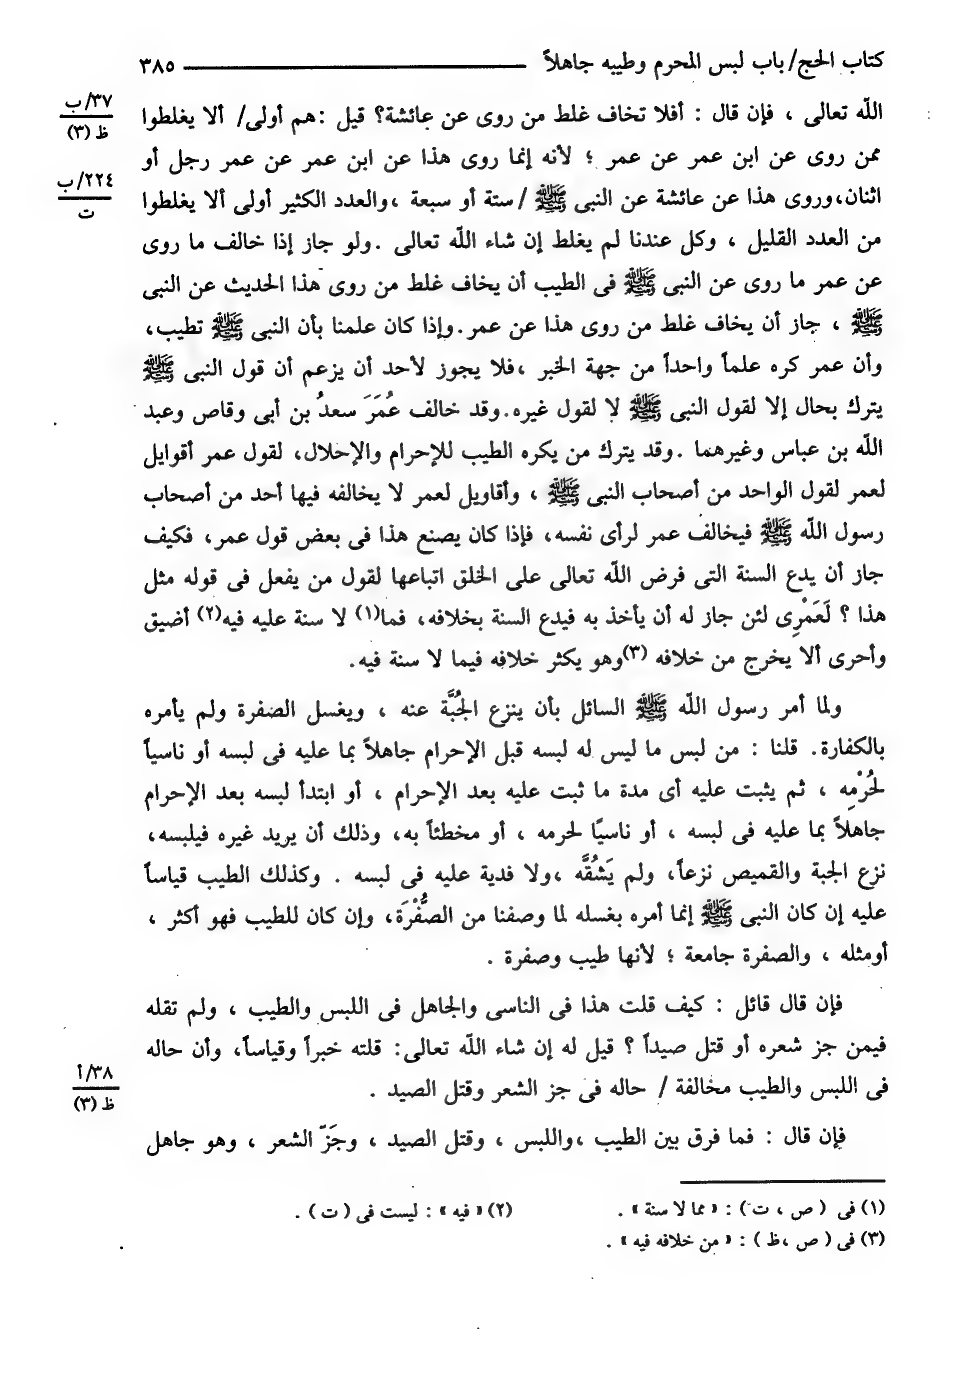 كتاب الحج/ باب لبس المحرم وطيبه جاهلاً ٣٨٥
الله تعالى ، فإن قال : أفلا تخاف غلط من روى عن عائشة؟ قيل :هم أولى/ ألا يغلطوا
٣٧/ب
ظ (٣)
ممن روى عن ابن عمر عن عمر ؛ لأنه إنما روى هذا عن ابن عمر عن عمر رجل أو
٢٢٤/ب
ت
اثنان،وروى هذا عن عائشة عن النبى ﷺ /ستة أو سبعة ،والعدد الكثير أولى ألا يغلطوا
من العدد القليل ، وكل عندنا لم يغلط إن شاء الله تعالى .ولو جاز إذا خالف ما روى
عن عمر ما روى عن النبى ﷺ فى الطيب أن يخاف غلط من روى هذا الحديث عن النبى
ﷺ ، جاز أن يخاف غلط من روى هذا عن عمر.وإذا كان علمنا بأن النبى ﷺ تطيب،
وأن عمر كره علماً واحداً من جهة الخبر ،فلا يجوز لأحد أن يزعم أن قول النبى ﷺ
يترك بحال إلا لقول النبى ﷺ لا لقول غيره.وقد خالف عُمَرَ سعدُ بن أبى وقاص وعبد
الله بن عباس وغيرهما .وقد يترك من يكره الطيب للإحرام والإحلال، لقول عمر أقوايل
لعمر لقول الواحد من أصحاب النبى ﷺ ، وأقاويل لعمر لا يخالفه فيها أحد من أصحاب
رسول الله ﷺ فيخالف عمر لرأى نفسه، فإذا كان يصنع هذا فى بعض قول عمر، فكيف
جاز أن يدع السنة التى فرض الله تعالى على الخلق اتباعها لقول من يفعل فى قوله مثل
هذا ؟ لَعَمْرِى لئن جاز له أن يأخذ به فيدع السنة بخلافه، فما(١) لا سنة عليه فيه(٢) أضيق
وأحرى ألا يخرج من خلافه (٣)وهو يكثر خلافه فيما لا سنة فيه.
ولما أمر رسول الله ﷺ السائل بأن ينزع الجُبَّة عنه ، ويغسل الصفرة ولم يأمره
بالكفارة. قلنا : من لبس ما ليس له لبسه قبل الإحرام جاهلاً بما عليه فى لبسه أو ناسياً
لحُرْمِه ، ثم يثبت عليه أى مدة ما ثبت عليه بعد الإحرام ، أو ابتدأ لبسه بعد الإحرام
جاهلاً بما عليه فى لبسه ، أو ناسيًا لحرمه ، أو مخطئاً به، وذلك أن يريد غيره فيلبسه،
نزع الجبة والقميص نزعاً، ولم يَشُقَّه ،ولا فدية عليه فى لبسه . وكذلك الطيب قياساً
عليه إن كان النبى ﷺ إنما أمره بغسله لما وصفنا من الصُّفْرَة، وإن كان للطيب فهو أكثر ،
أومثله ، والصفرة جامعة ؛ لأنها طيب وصفرة .
فإن قال قائل : كيف قلت هذا فى الناسى والجاهل فى اللبس والطيب ، ولم تقله
فيمن جز شعره أو قتل صيداً ؟ قيل له إن شاء الله تعالى: قلته خبراً وقياساً، وأن حاله
فى اللبس والطيب مخالفة / حاله فى جز الشعر وقتل الصيد .
٣٨/أ
ظ (٣)
فإن قال : فما فرق بين الطيب ،واللبس ، وقتل الصيد ، وجَزّ الشعر ، وهو جاهل
(١) فى ( ص ، ت ) : « مما لا سنة » . (٢) « فيه » : ليست فى ( ت ) .
(٣) فى ( ص ،ظ ) : « من خلافه فيه » .